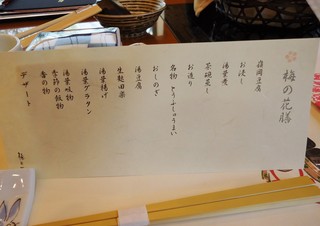 梅の花膳
嶺岡豆腐
お浸し
湯葉煮
茶碗蒸し
お造り
名物 とうふしゅうまい
おしのぎ
湯豆腐
生麩田楽
湯葉揚げ
湯葉グラタン
湯葉吸物
季節の飯物
香の物
デザート